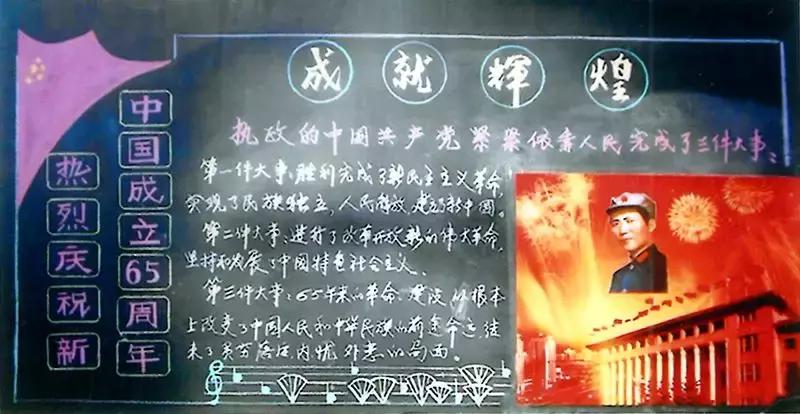 热烈庆祝新
中国成立65周年
成就辉煌
执政的中国共产党紧紧依靠人民完成了三件大事：
第一件大事：胜利完成了新民主主义革命，
实现了民族独立，人民解放，建立了新中国。
第二件大事、进行了改革开放新的伟大革命，
坚持和发展了中国特色社会主义。
第三件大事：65年来的革命、建设，从根本
上改变了中国人民和中华民族的前途命运，结
束了贫穷落后内忧外患的局面。